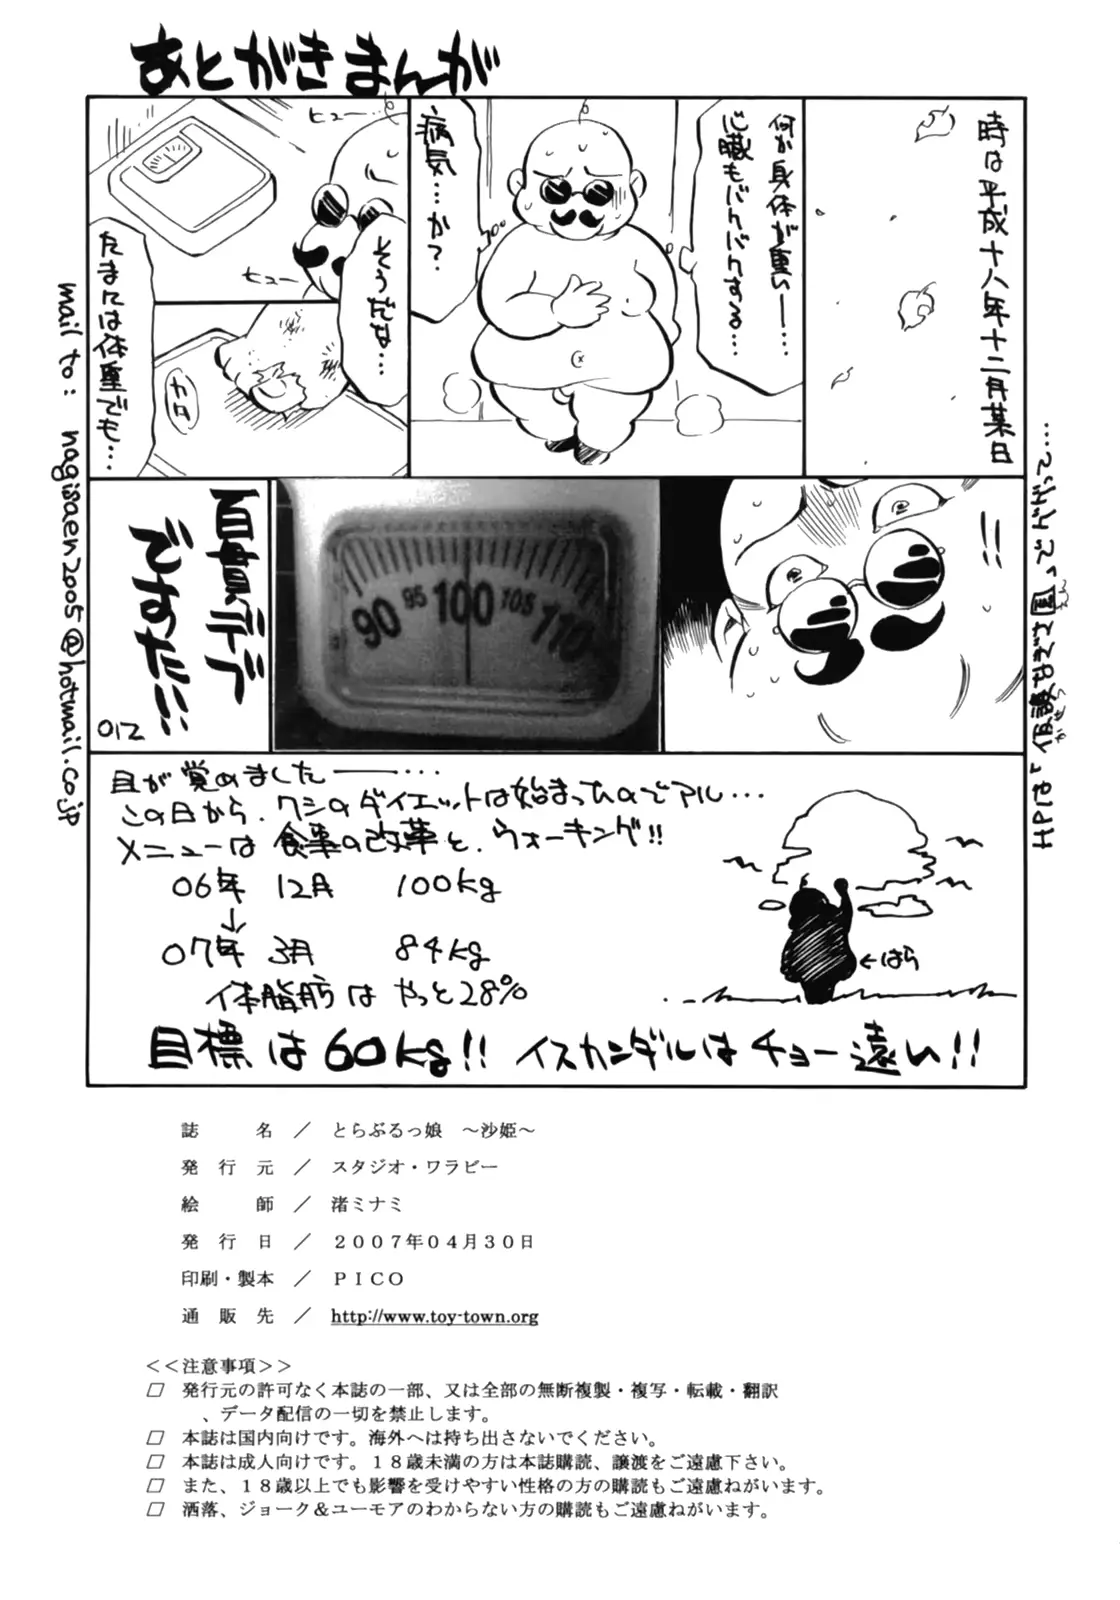 あとがきまんが
時は平成十八年十二月某日
何か身体が重い―…
心臓もバクバクする…
病気…か?
ヒュー…
ヒュー
そうだな…
たまには体重でも…
カタ
!!
90 95 100 105 110
百貫デブ
ですた!!
012
目が覚めました――…
この日から、ワシのダイエットは始まったのでアル…
メニューは食事の改革と、ウォーキング!!
06年 12月 100kg
↓
07年 3月 84kg
体脂肪は やっと28%
←はら
目標は60kg!! イスカンダルはチョー遠い!!
mail to: nagisaen2005@hotmail.co.jp
誌名／とらぶるっ娘 ～沙姫～
発行元／スタジオ・ワラビー
絵師／渚ミナミ
発行日／２００７年０４月３０日
印刷・製本／ＰＩＣＯ
通販先／http://www.toy-town.org
＜＜注意事項＞＞
□ 発行元の許可なく本誌の一部、又は全部の無断複製・複写・転載・翻訳
、データ配信の一切を禁止します。
□ 本誌は国内向けです。海外へは持ち出さないでください。
□ 本誌は成人向けです。１８歳未満の方は本誌購読、譲渡をご遠慮下さい。
□ また、１８歳以上でも影響を受けやすい性格の方の購読もご遠慮ねがいます。
□ 洒落、ジョーク＆ユーモアのわからない方の購読もご遠慮ねがいます。